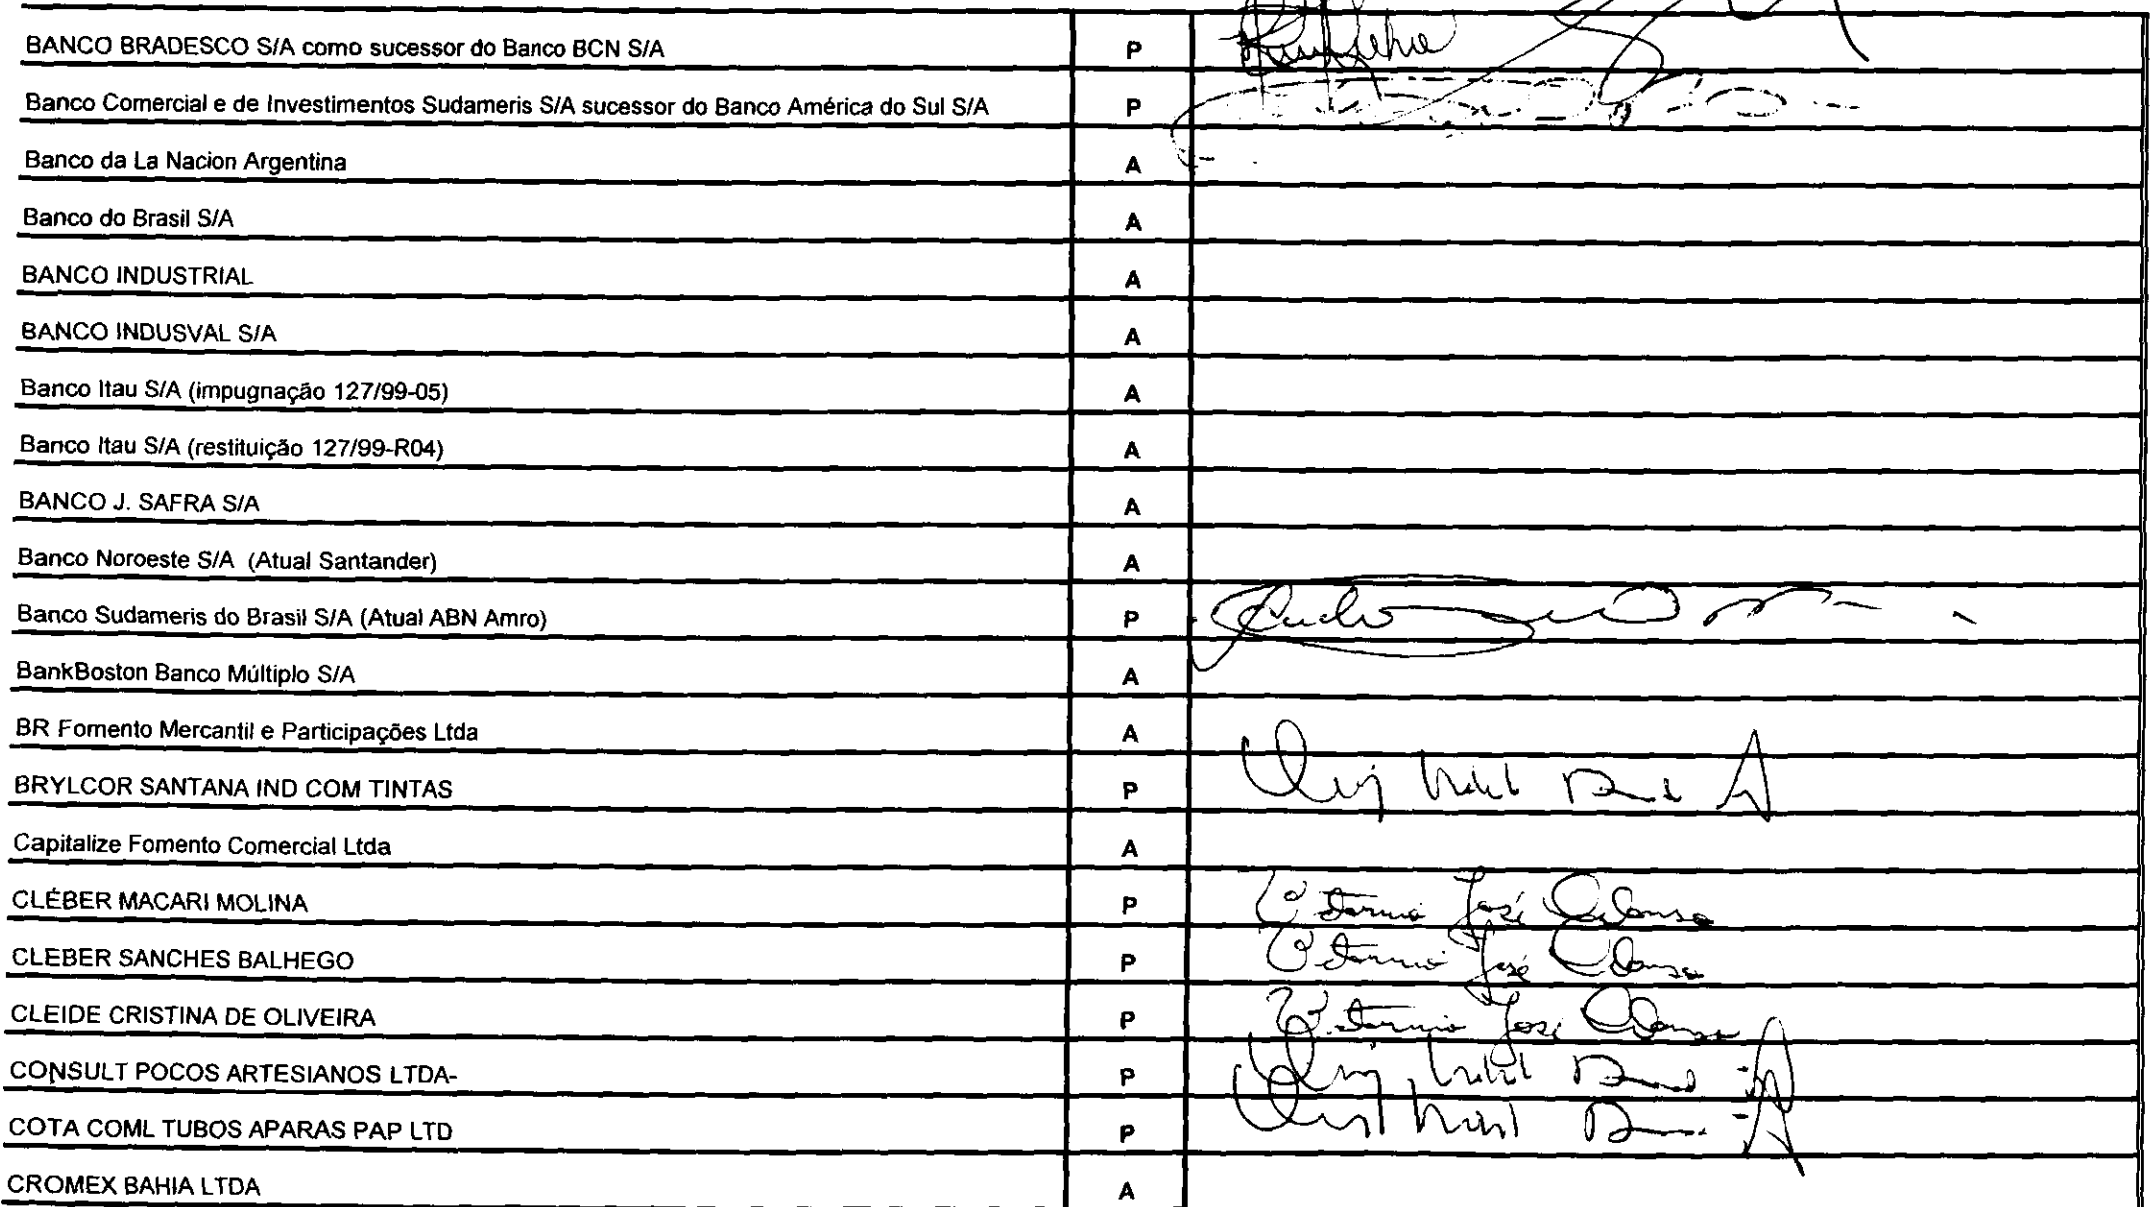 BANCO BRADESCO S/A como sucessor do Banco BCN S/A P
Banco Comercial e de Investimentos Sudameris S/A sucessor do Banco América do Sul S/A P
Banco da La Nacion Argentina A
Banco do Brasil S/A A
BANCO INDUSTRIAL A
BANCO INDUSVAL S/A A
Banco Itau S/A (impugnação 127/99-05) A
Banco Itau S/A (restituição 127/99-R04) A
BANCO J. SAFRA S/A A
Banco Noroeste S/A (Atual Santander) A
Banco Sudameris do Brasil S/A (Atual ABN Amro) P
BankBoston Banco Múltiplo S/A A
BR Fomento Mercantil e Participações Ltda A
BRYLCOR SANTANA IND COM TINTAS P
Capitalize Fomento Comercial Ltda A
CLÉBER MACARI MOLINA P José
CLEBER SANCHES BALHEGO P José
CLEIDE CRISTINA DE OLIVEIRA P José
CONSULT POCOS ARTESIANOS LTDA- P
COTA COML TUBOS APARAS PAP LTD P
CROMEX BAHIA LTDA A